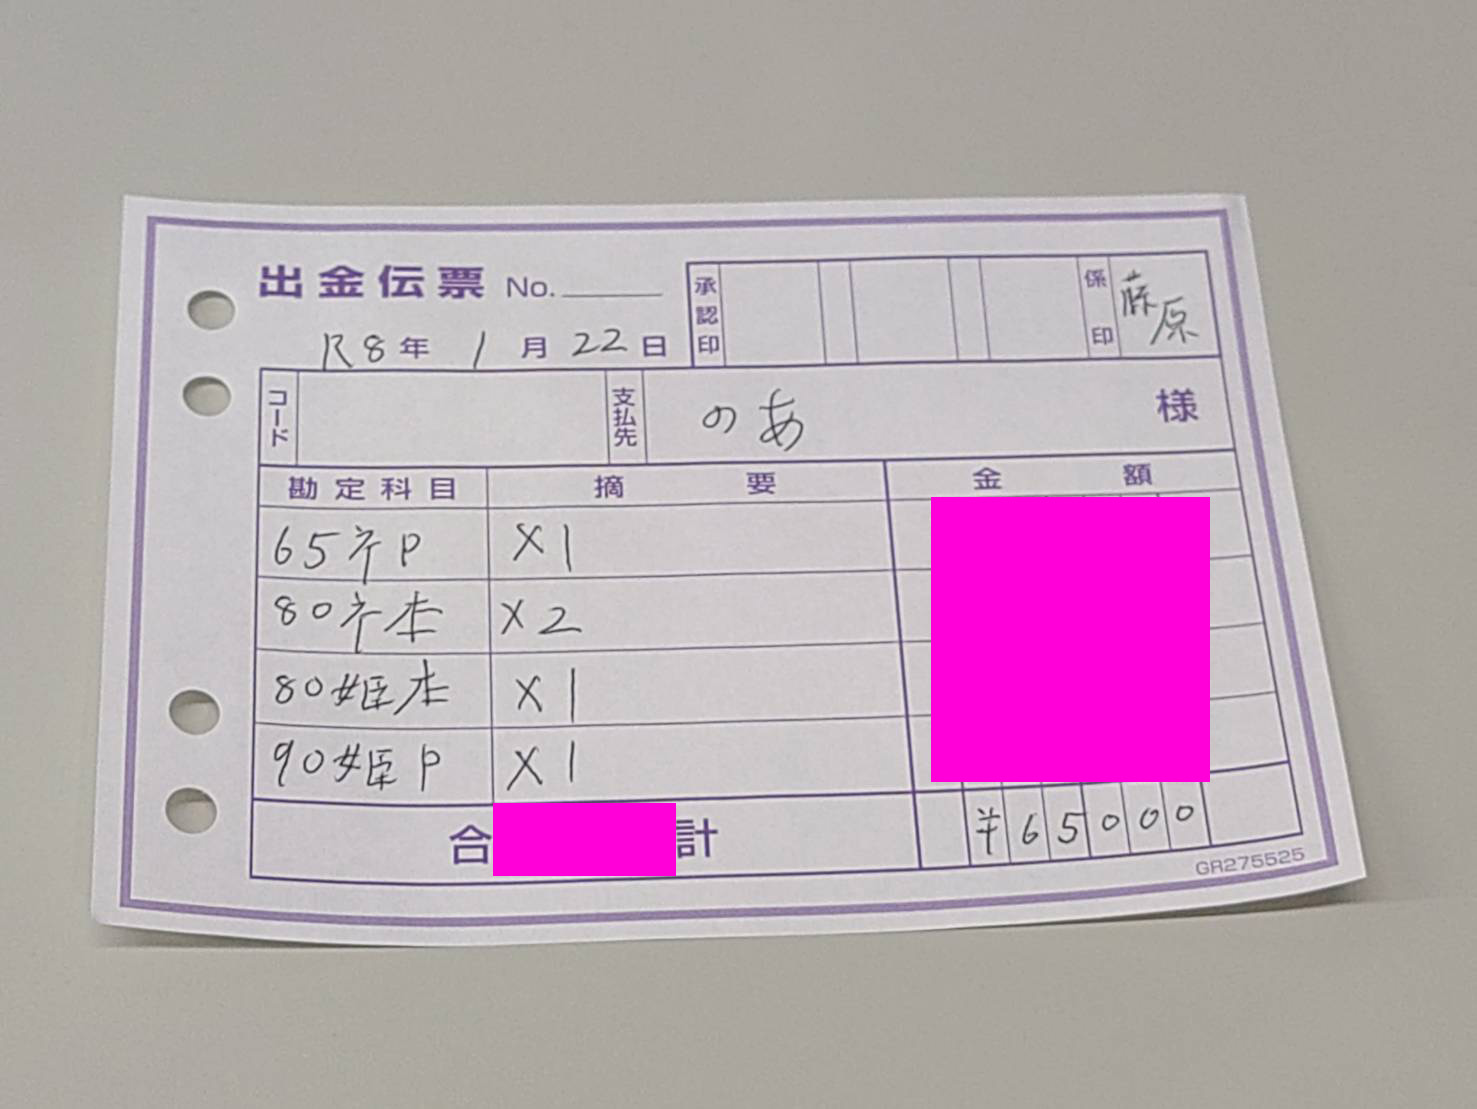 出金伝票 No.
承認印
係印
藤原
R8年 1月 22日
コード
支払先
のあ 様
勘定科目 摘要 金額
65ネP ×1
80ネ本 ×2
80姫本 ×1
90姫P ×1
合 計 ¥65000
GR275525